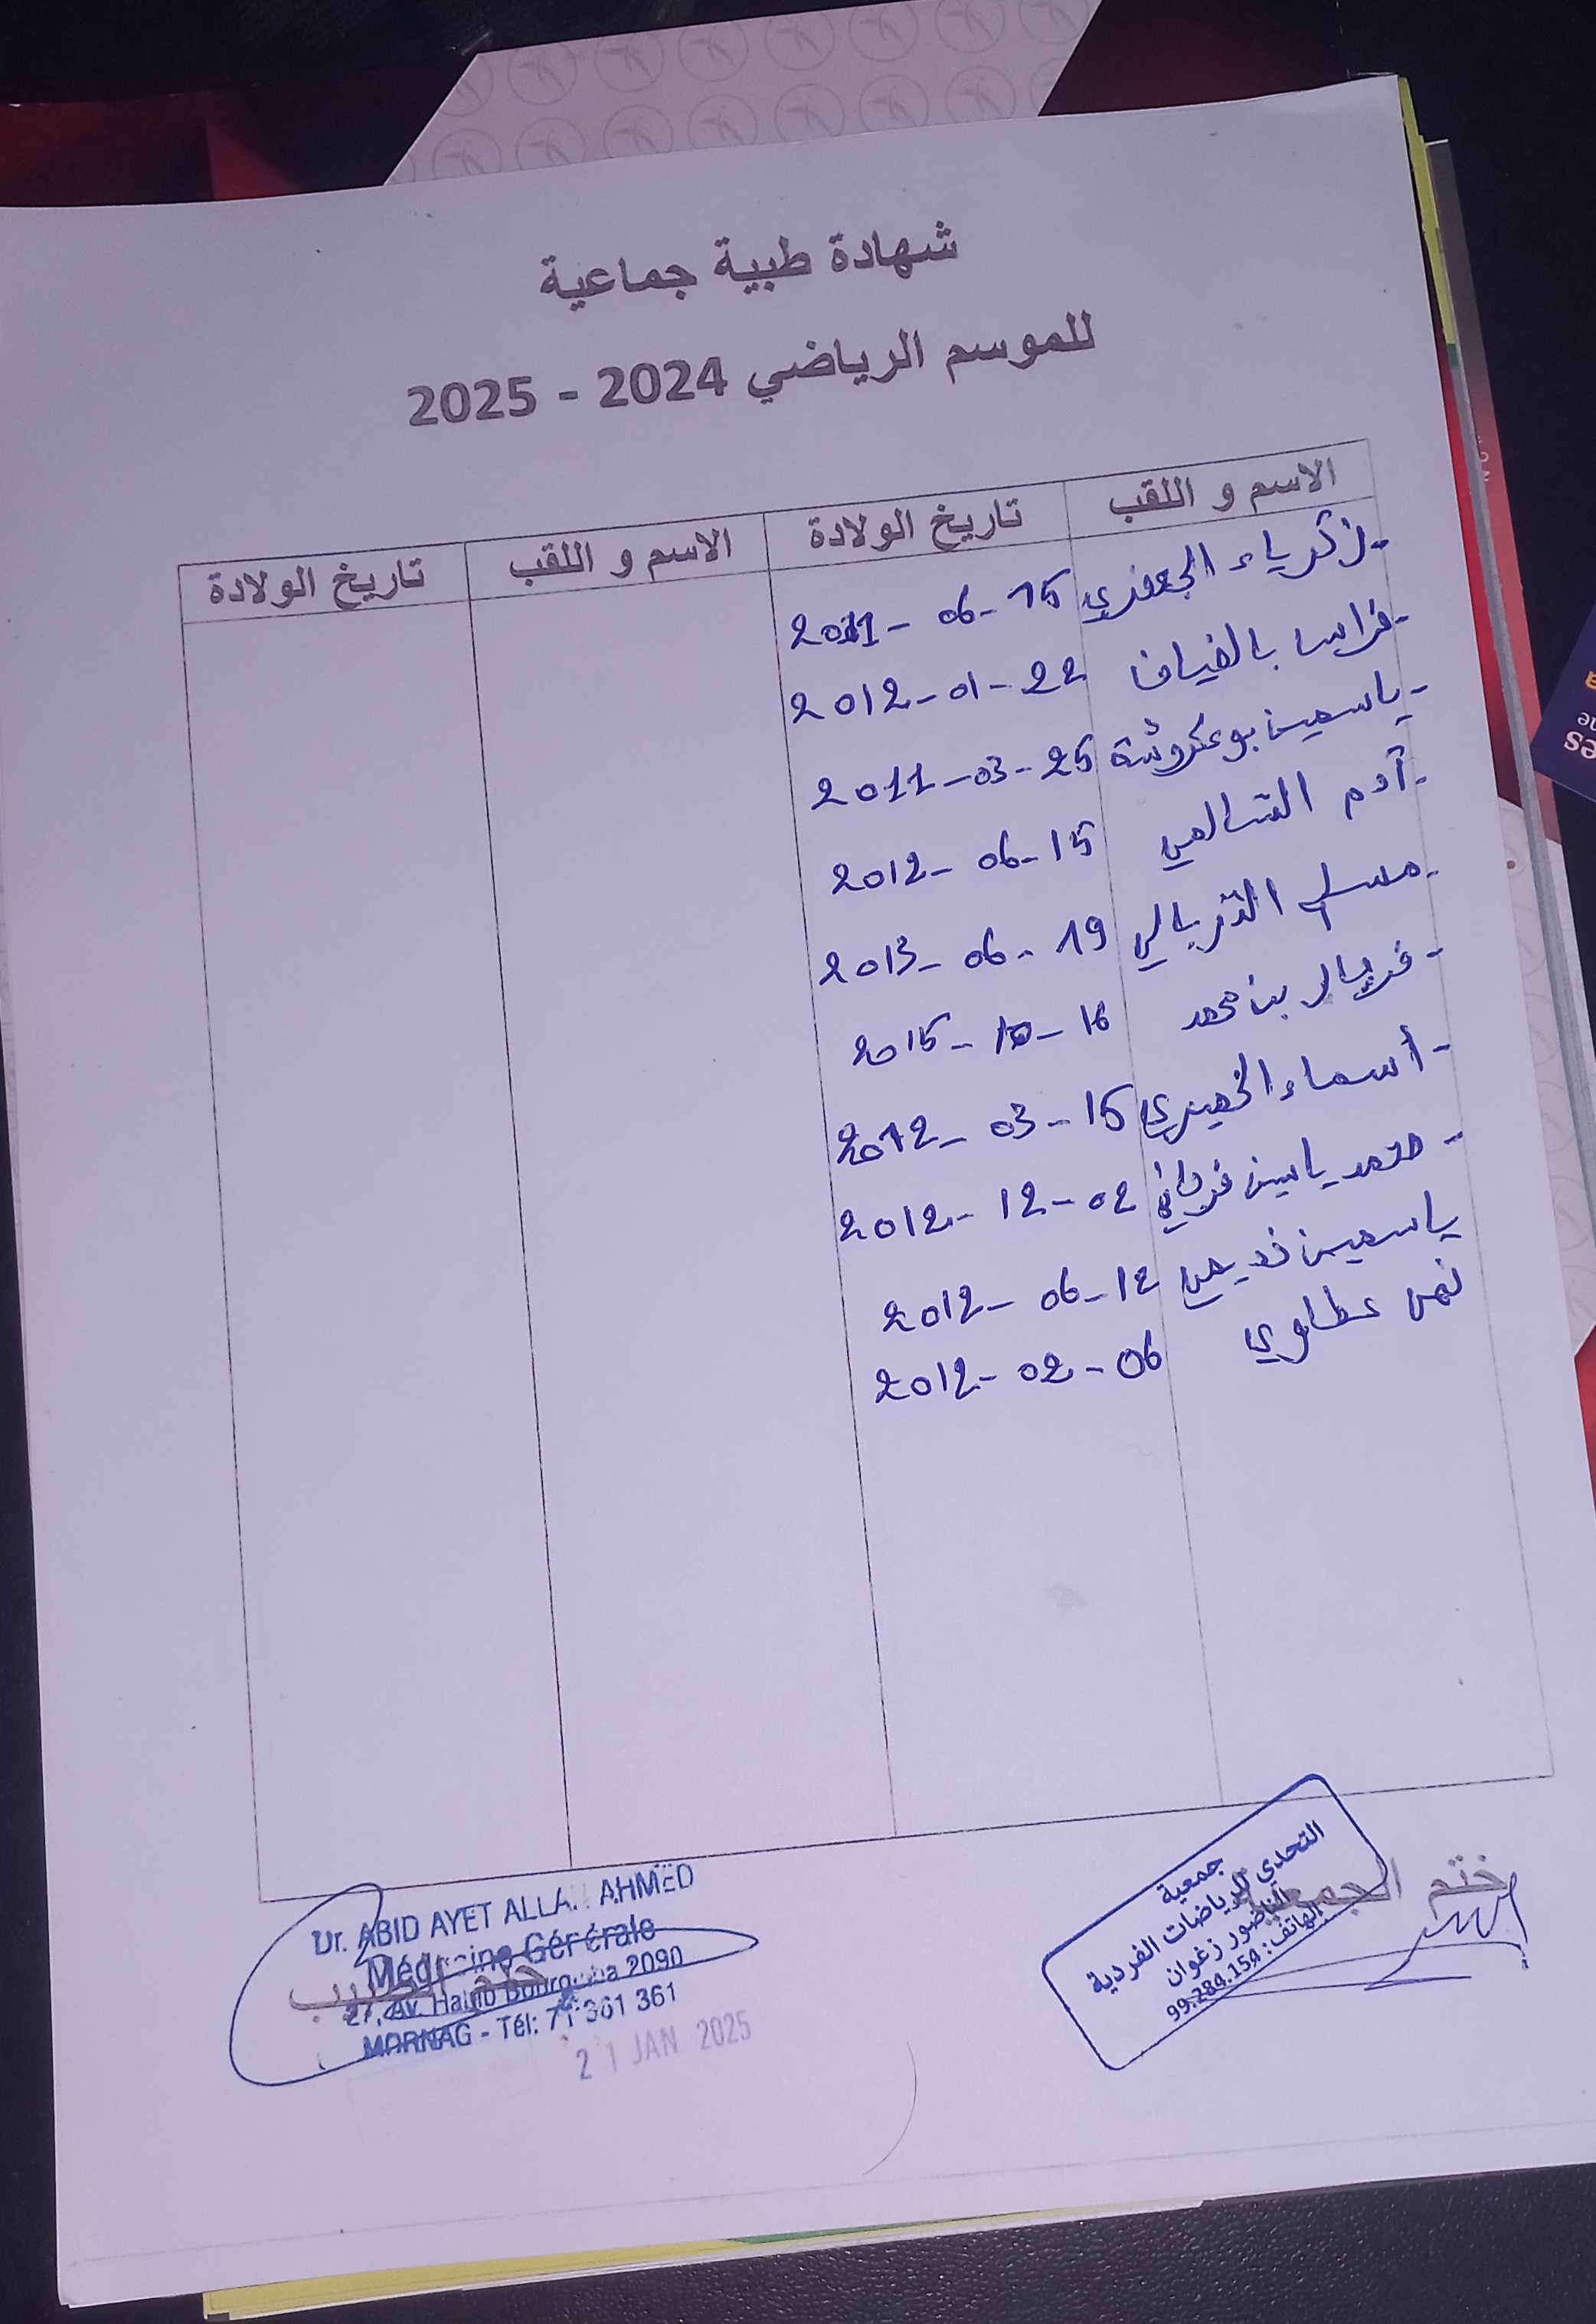 شهادة طبية جماعية
للموسم الرياضي 2024 - 2025
الاسم و اللقب تاريخ الولادة الاسم و اللقب تاريخ الولادة
- زكرياء الجعفري 15 - 06 - 2011
- فراس بالضياف 22 - 01 - 2012
- ياسمين بوعكروشة 25 - 03 - 2011
- آدم السالمي 15 - 06 - 2012
- مسلم الغربالي 19 - 06 - 2013
- فريال بن محمد 16 - 10 - 2015
- أسماء الخميري 15 - 03 - 2012
- محمد ياسين فرحاني 02 - 12 - 2012
ياسمين 12 - 06 - 2012
عطاوي 06 - 02 - 2012
ختم الجمعية
جمعية
التحدي للرياضات الفردية
الناضور زغوان
الهاتف: 99.284.154
ختم الطبيب
Dr. ABID AYET ALLAH AHMED
Médecine Générale
27, Av. Habib Bourguiba 2090
MORNAG - Tél: 71 361 361
21 JAN. 2025